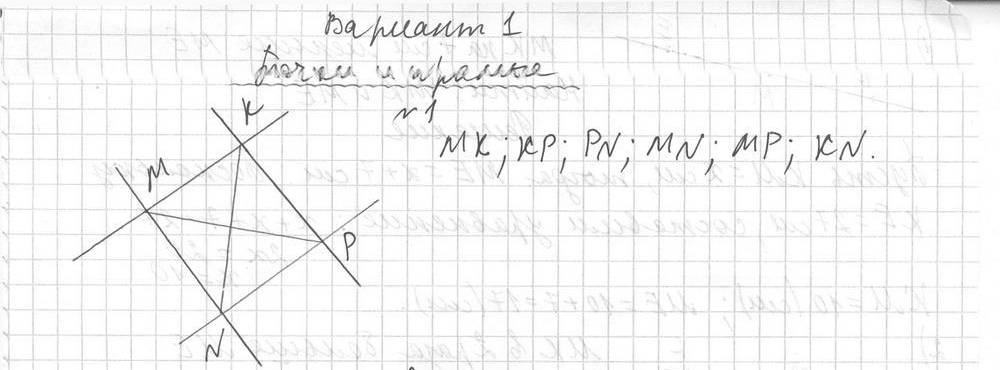 Вариант 1
Точки и прямые
№1
K
MK; KP; PN; MN; MP; KN.
M
P
N